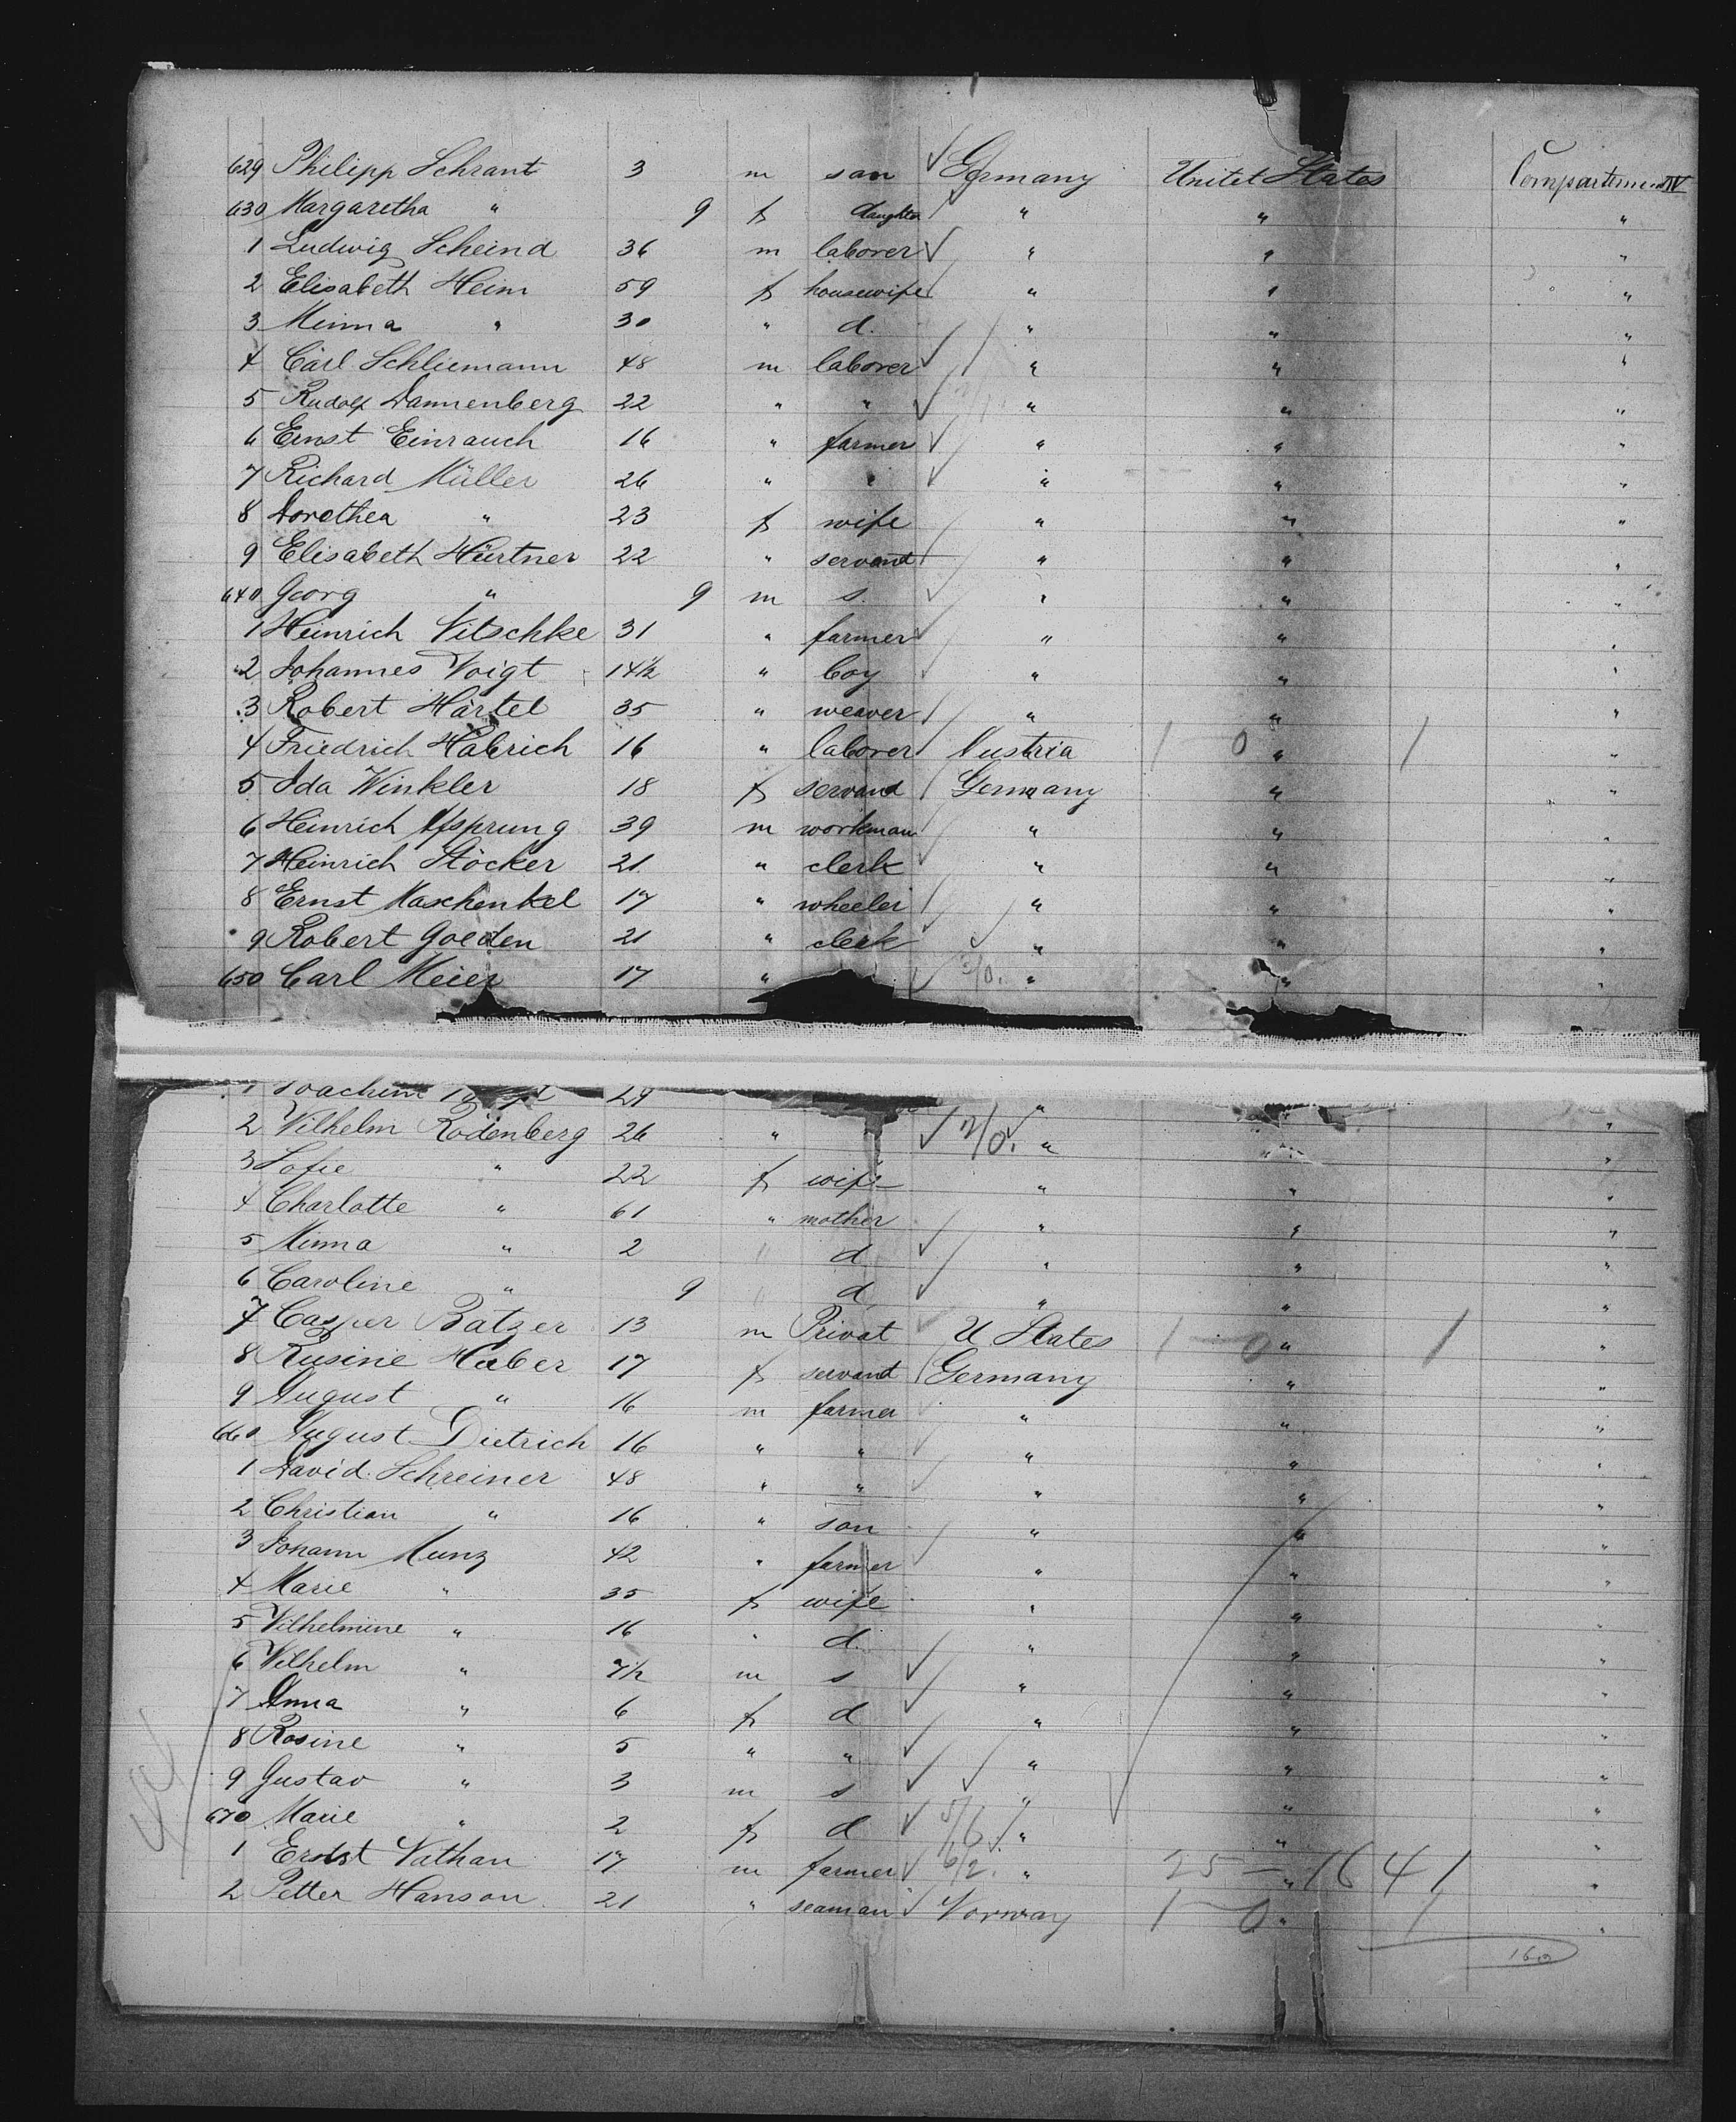 629 Philipp Schrant 3 m son Germany Unitet States Compartement IV
630 Margaretha " 9 f daughter " " "
1 Ludwig Scheind 36 m laborer " " "
2 Elisabeth Heim 59 f housewife " " "
3 Minna " 30 " d. " " "
4 Carl Schliemann 48 m laborer " " "
5 Rudolf Dannenberg 22 " " " " "
6 Ernst Einrauch 16 " farmer " " "
7 Richard Müller 26 " " " " "
8 Dorothea " 23 f wife " " "
9 Elisabeth Hürtner 22 " servant " " "
640 Georg " 9 m s. " " "
1 Heinrich Nitschke 31 " farmer " " "
2 Johannes Voigt 14½ " boy " " "
3 Robert Härtel 35 " weaver " " "
4 Friedrich Habrich 16 " laborer Austria 1 0 " 1 "
5 Ida Winkler 18 f servand Germany " "
6 Heinrich 39 m workman " " "
7 Heinrich Stöcker 21 " clerk " " "
8 Ernst Maschenkel 17 " wheeler " " "
9 Robert Goeden 21 " clerk " " "
650 Carl Meier 17 " " " "
1 Joachim 29 " " "
2 Wilhelm Rödenberg 26 " 7/0. " " "
3 Sofie " 22 f wife " " "
4 Charlotte " 61 " mother " " "
5 Minna " 2 " d " " "
6 Caroline " 9 " d " " "
7 Casper Batzer 13 m Privat U States 1 - 0 " 1 "
8 Rusine Huber 17 f servand Germany " "
9 August " 16 m farmer " " "
660 August Dietrich 16 " " " " "
1 David Schreiner 48 " " " " "
2 Christian " 16 " son " " "
3 Johann Munz 42 " farmer " " "
4 Marie " 35 f wife " " "
5 Wilhelmine " 16 " d. " " "
6 Wilhelm " 7½ m s " " "
7 Anna " 6 f d " " "
8 Rosine " 5 " " " " "
9 Gustav " 3 m s " " "
670 Marie " 2 f d " " "
1 Ernst Nathan 17 m farmer 6/2. " 25 - " 16 41 "
2 Petter Hanson 21 " seaman Norway 1 - 0 " 1 "
160